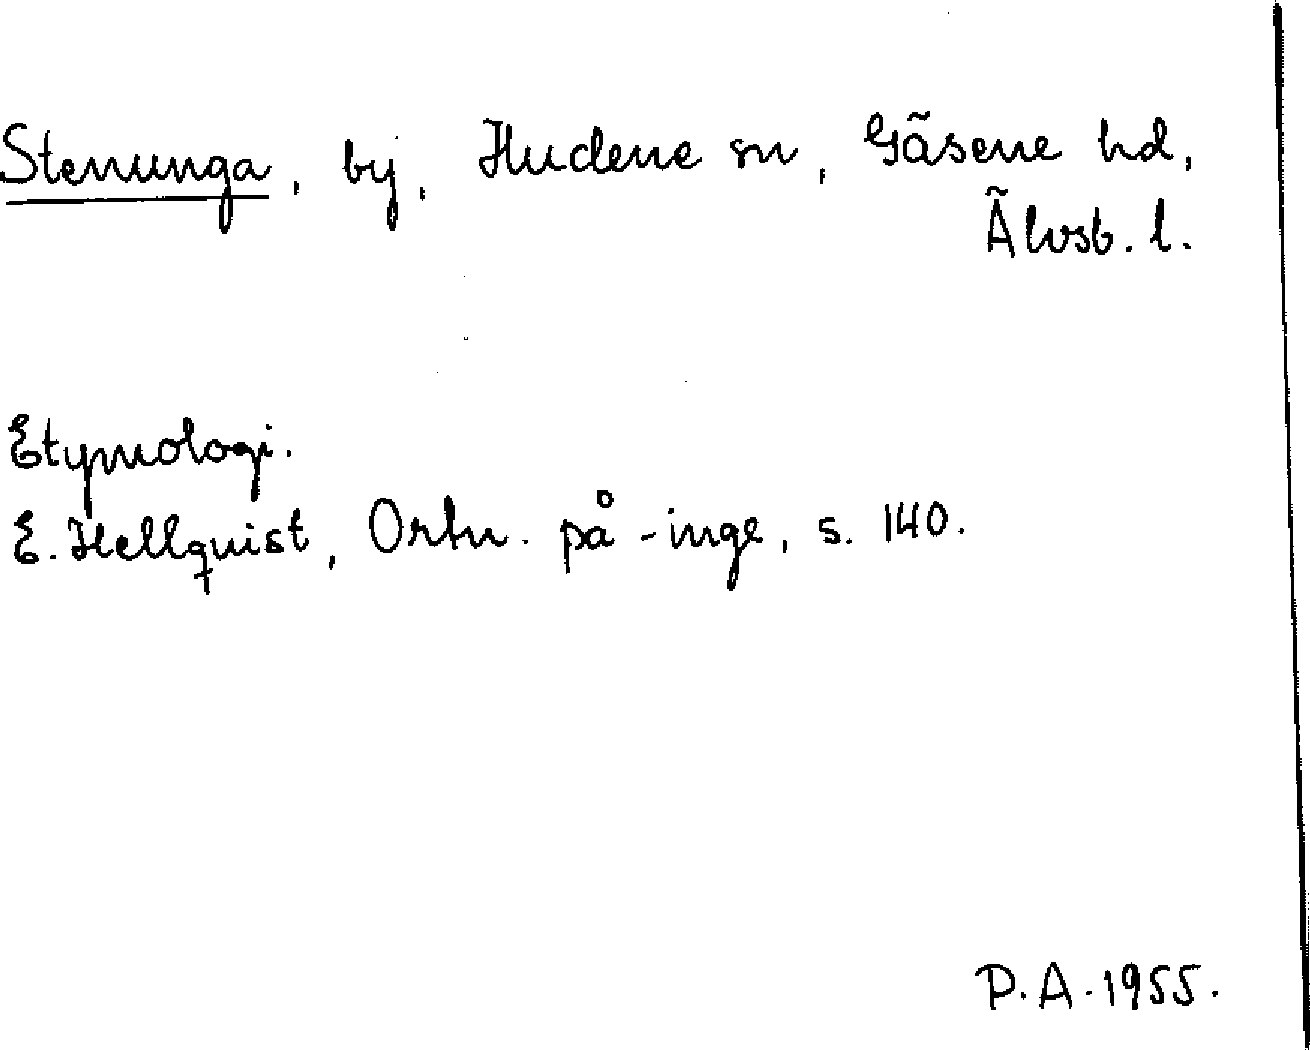 Stenunga, by, Hudene sn, Gäsene hd,
Älvsb. l.
Etymologi.
E. Hellquist, Ortn. på -inge, s. 140.
P.A. 1955.